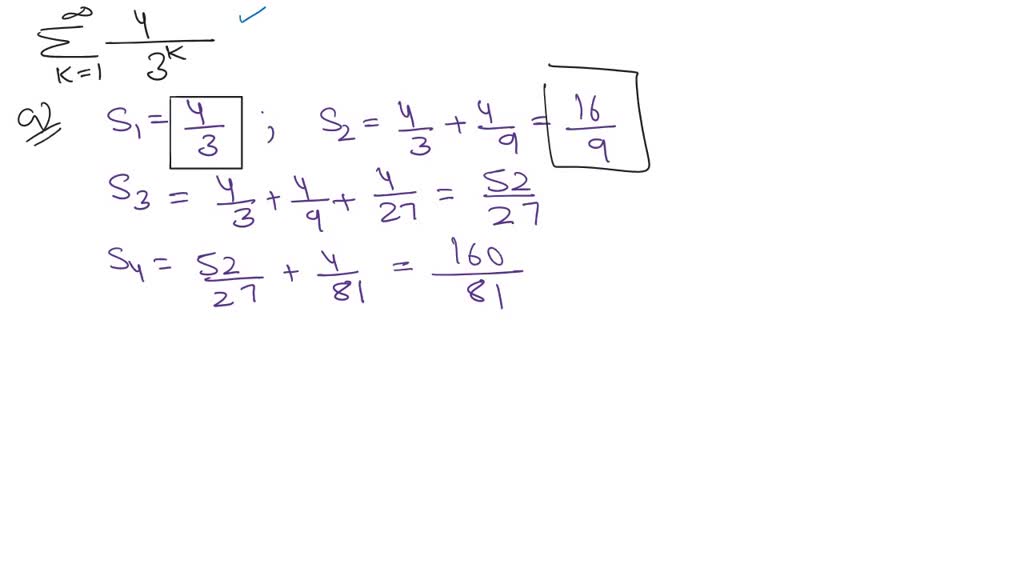 ∞
∑ 4/3^k ✓
K=1
a) S₁ = 4/3 ; S₂ = 4/3 + 4/9 = 16/9
S₃ = 4/3 + 4/9 + 4/27 = 52/27
S₄ = 52/27 + 4/81 = 160/81